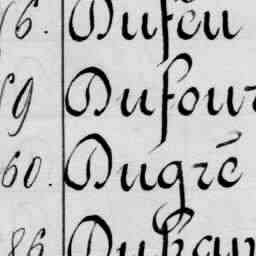 56. Dufeu
59 Dufour
60. Dugré
86 Duhau